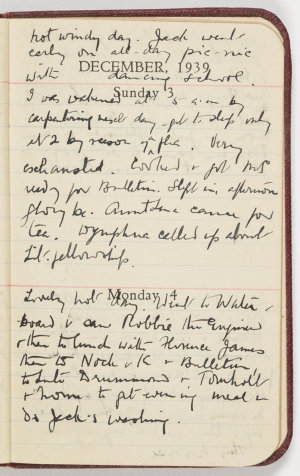 hot windy day. Jack went
early on all-day pic-nic
DECEMBER, 1939
with dancing school.
Sunday 3
I was wakened at 5 a.m by
carpentering next day - get to sleep only
at 2 by reason
exhausted. Cooked & got MS
ready for Bulletin. Slept in afternoon
glory be. Aunt came for
tea. Wymphna called up about
Lit. fellowship.
Monday 4
Lovely hot day. Went to Water
board & saw Robbie the Engineer
& then to lunch with Florence James,
then to Nock & K & Bulletin,
to Drummond &
& home to get evening meal &
do Jack's washing.